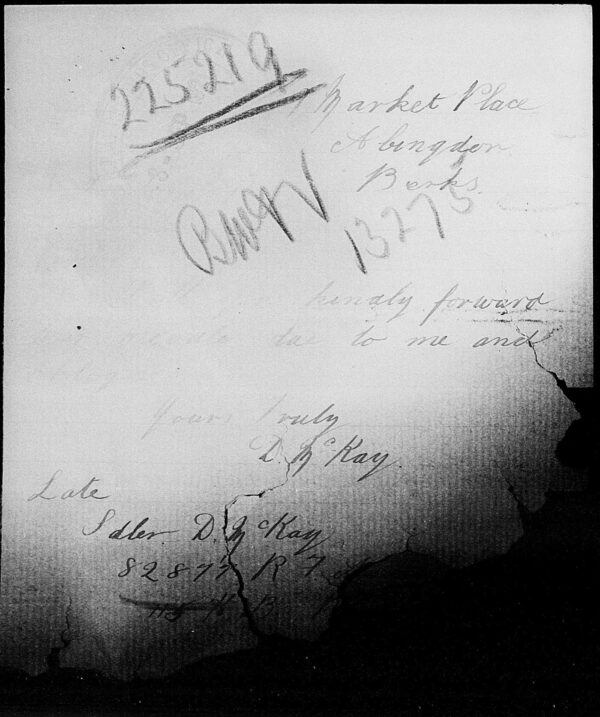 225219
Market Place
Abingdon
Berks.
BW9
13275
kindly forward
due to me and
Yours truly
D. McKay.
Late
Sdler D. McKay
82877 R F
115 H. B